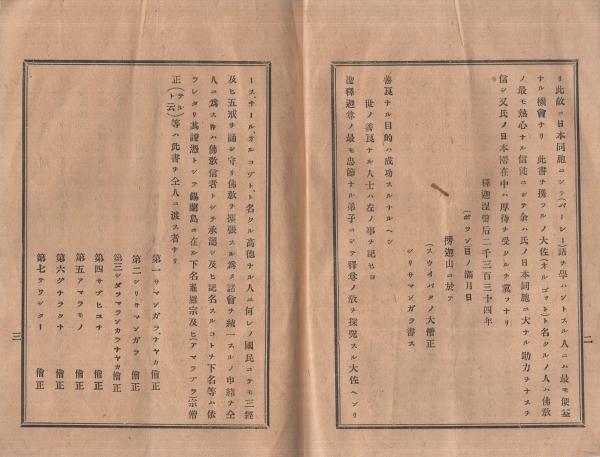 リ此故ニ日本同胞ニシテ(パーレー)語ヲ學ハントスル人ニハ最モ便益
ナル機會ナリ 此書ヲ携フルノ大佐(オルゴット)ト名クルノ人ハ佛敎
ノ最モ熱心ナル信徒ニシテ余ハ氏ノ日本同胞ニ大ナル助力ヲナスヲ
信シ又氏ノ日本滯在中ハ厚待ヲ受クルヲ冀フナリ
釋迦涅槃后二千三百三十四年
(ポソン)日ノ滿月日
楞迦山ニ於テ
(スウイパタ)ノ大僧正
シリサマンガラ書ス
善良ナル目的ハ成功スルナルヘシ
世ノ善良ナル人士ハ左ノ事ヲ記セヨ
聖釋迦尊ノ最モ忠節ナル弟子ニシテ釋尊ノ敎ヲ探究スル大佐ヘンリ
二
ース、サール、オルコット、ト名クル高德ナル人ニ何レノ國民ニテモ三歸
及ヒ五戒ヲ誦シ守リ佛敎ヲ擴張スル爲メ諸會ヲ統一スルノ申緖ヲ仝
人ニ爲ス片ハ佛敎信者トシテ承認シ及ヒ記名スルコトヲ下名等ハ依
ラレタリ其證憑トシテ錫蘭島ニ在ル下名暹羅宗及ヒ(アマラプラ)宗僧
正(テルト云)等ハ此書ヲ仝人ニ渡ス者ナリ
第一サマンガラ、ナヤカ 僧正
第二シリサマンガラ 僧正
第三シダラマランカラナヤカ 僧正
第四サブヒユチ 僧正
第五アマラモノ 僧正
第六グナラタナ 僧正
第七テワシター 僧正
三